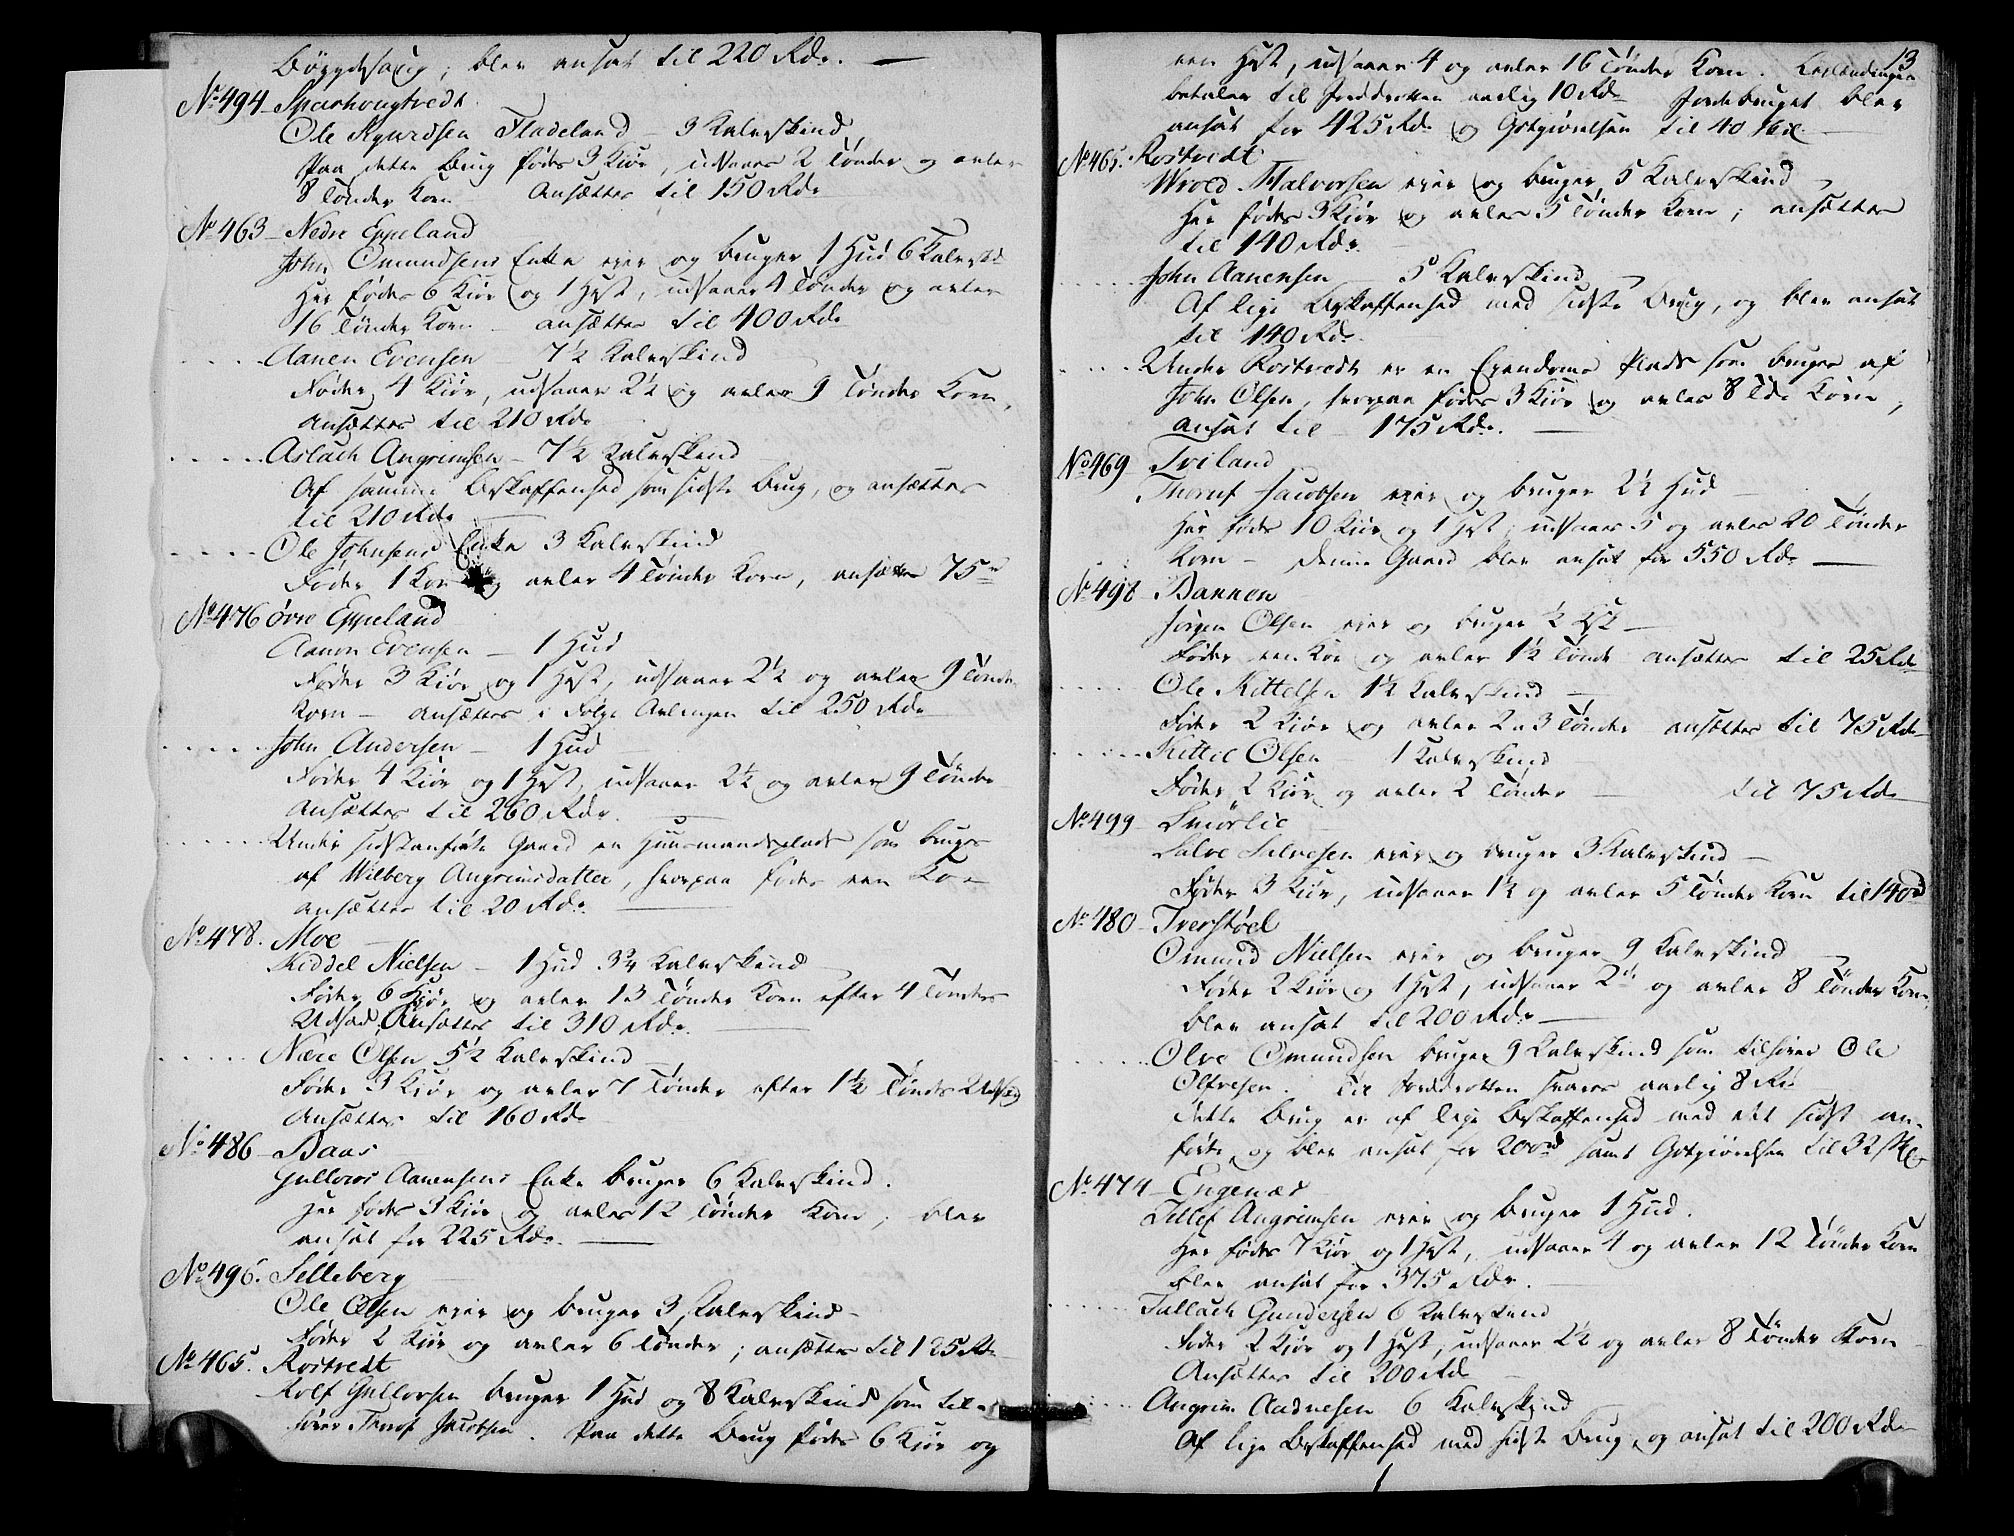 Böygdesaug, blev ansat til 220 Rdr. —
No 494 – Sparhougtvedt.
Ole Sjurdsen Fladeland – 3 Kalvskind
Paa dette Brug födes 3 Kiör, udsaaes 2 Tönder og avles
8 Tönder Korn – Ansættes til 150 Rdr
No 463 – Nedre Eppeland
John Omundsens Enke eier og bruger 1 Hud 6 Kalvsk
Her födes 6 Kiör og 1 Hest, udsaaes 4 Tönder og avles
16 Tönder Korn – ansættes til 400 Rdr
..... Aanen Evensen 7½ Kalvskind
Föder 4 Kiör, udsaaer 2½ og avler 9 Tönder Korn,
ansættes til 210 Rdr
..... Aslach Angrimsen – 7½ Kalvskind
Af samme Beskaffenhed som sidste Brug, og ansættes
til 210 Rdr
..... Ole Johnsens Enke 3 Kalvskind
Föder 1 Koe og avler 4 Tönder Korn, ansættes 75 rd
No 476 Övre Eppeland
Aanon Evensen – 1 Hud
Föder 3 Kiör og 1 Hest, udsaaer 2½ og avler 9 Tönder
Korn – ansættes i Fölge Avlingen til 250 Rdr
..... John Andersen – 1 Hud –
Föder 4 Kiör og 1 Hest, udsaaer 2½ og avler 9 Tönder
ansættes til 260 Rdr. —
..... Under sidstanförte Gaard en Huusmandsplads som bruges
af Wilberg Angrimsdatter, hvorpaa födes een Koe
ansættes til 20 Rdr. —
No 478. Moe –
Kiddel Nielsen – 1 Hud 3¾ Kalvskind –
Föder 6 Kiör og avler 13 Tönder Korn efter 4 Tönders
Udsæd, Ansættes til 310 Rdr. —
..... Nære Olsen 5½ Kalvskind –
Föder 3 Kiör og avler 7 Tönder efter 1½ Tönds Udsæd
Ansættes til 160 Rdr
No 486 – Baas
Gulloros Aanensens Enke bruger 6 Kalvskind.
Her födes 3 Kiör og avles 12 Tönder Korn, blev
ansat for 225 Rdr. —
No 496. Selleberg –
Ole Olsen eier og bruger 3 Kalvskind –
Föder 2 Kiör og avler 6 Tönder; ansættes til 125 Rdr
No 465. Rostvedt
Rolf Gullovsen bruger 1 Hud og 8 Kalvskind som til-
hörer Thorof Jacobsen. Paa dette Brug födes 6 Kiör og
13
een Hest, udsaaes 4 og avles 16 Tönder Korn. Leilændingen
betaler til Jorddrotten aarlig 10 Rdr Jordebruget blev
ansat for 425 Rdr og Godtgiörelsen til 40 Skil. –
No 465. Rostvedt
Wrold Halvorsen eier og bruger 5 Kalvskind –
Her födes 3 Kiör og avles 5 Tönder Korn; ansættes
til 140 Rdr. –
..... John Aanensen – 5 Kalvskind –
Af lige Beskaffenhed med sidste Brug, og blev ansat
til 140 Rdr.
..... Under Rostvedt er en Eyendoms Plads som bruges af
John Olsen, hvorpaa födes 3 Kiör og avles 8 Tdr Korn,
Ansat til – 175 Rdr. —
No 469 Tviland
Thoruf Jacobsen eier og bruger 2½ Hud –
Her födes 10 Kiör og 1 Hest; udsaaes 5 og avles 20 Tönder
Korn – Denne Gaard blev ansat for 550 Rdr —
No 498 Bannen
Jörgen Olsen eier og bruger ½ Ksk –
Föder een Koe og avler 1½ Tönde ansættes til 25 Rdr
..... Ole Kittelsen 1½ Kalvskind –
Föder 2 Kiör og avler 2 a 3 Tönder ansættes til 75 Rdr
..... Kittel Olsen – 1 Kalvskind –
Föder 2 Kiör og avler 2 Tönder – til 75 Rdr
No 499 – Smörlie –
Salve Silvesen eier og bruger 3 Kalvskind –
Föder 3 Kiör, udsaaer 1½ og avler 5 Tönder Korn til 140 rd
No 480 – Tverstöel
Omund Nielsen eier og bruger 9 Kalvskind –
Föder 2 Kiör og 1 Hest, udsaaer 2 og avler 8 Tönder Korn,
blev ansat til 200 Rdr —
..... Olve Omundsen bruger 9 Kalvskind som tilhörer Ole
Olfvesen. Til Jorddrotten svares aarlig 8 Rd
Dette Brug er af lige Beskaffenhed med det sidst an-
förte og blev ansat for 200 rd samt Godtgiörelsen til 32 Skil
No 474 – Engenæs
Tellef Angrimsen eier og bruger 1 Hud.
Her födes 7 Kiör og 1 Hest, udsaaes 4 og avles 12 Tönder Korn
blev ansat for 375 Rdr. –
..... Tallach Gundersen 6 Kalvskind
Föder 2 Kiör og 1 Hest, udsaaer 2½ og avler 8 Tönder Korn –
Ansættes til 200 Rdr –
..... Angrim Aadnesen 6 Kalvskind
Af lige Beskaffenhed med sidste Brug og ansat til 200 Rdr